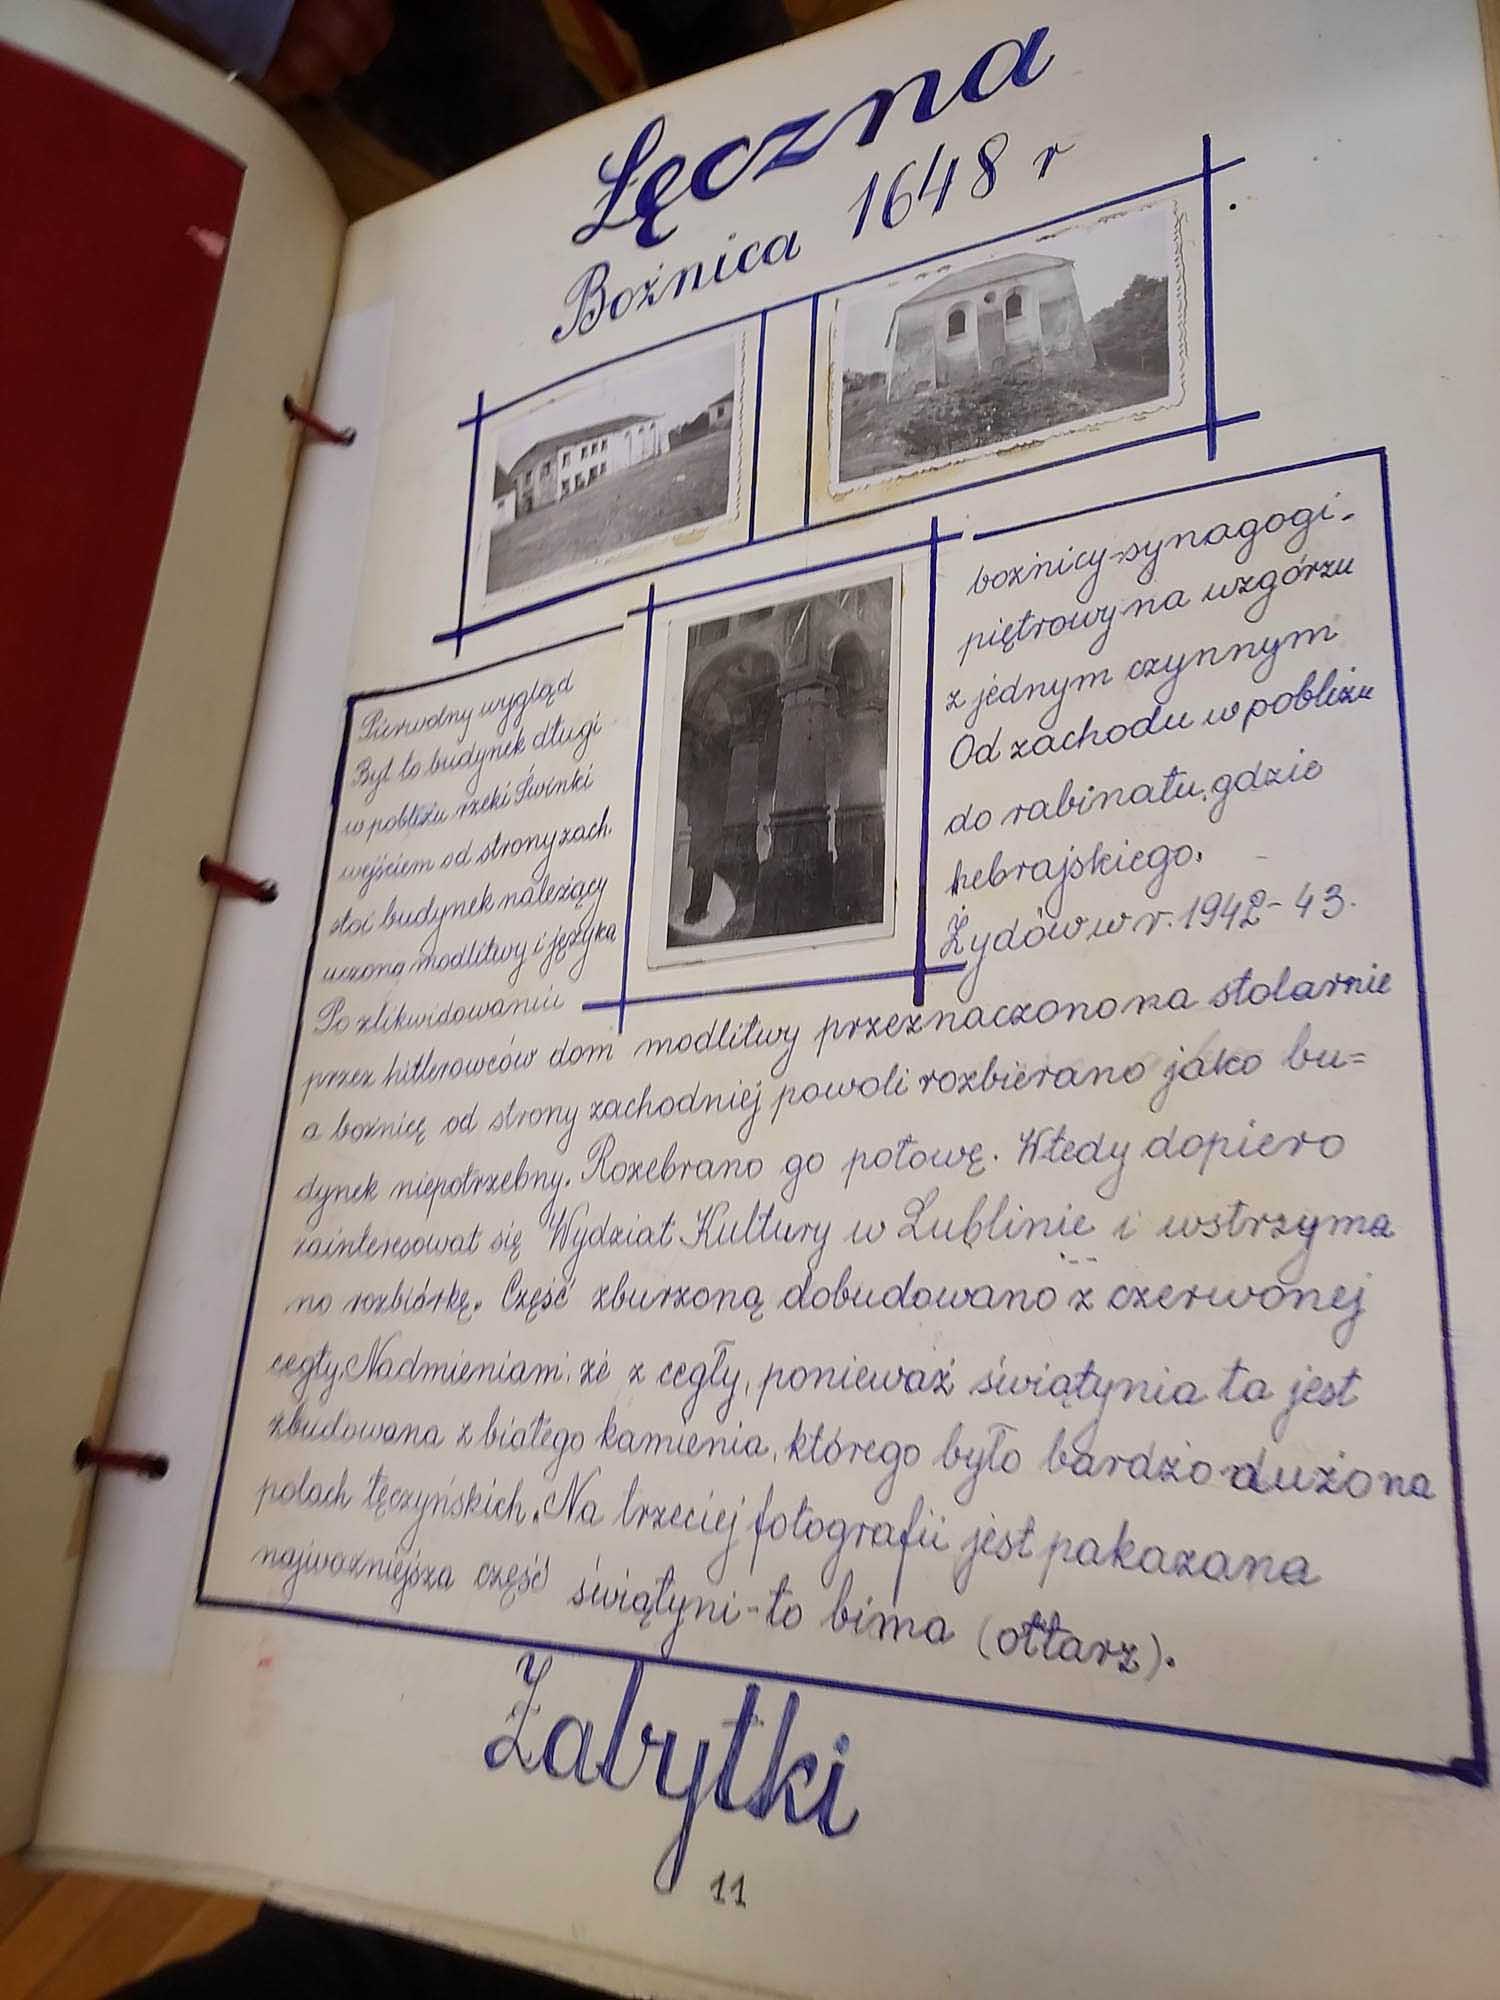 Łęczna
Bożnica 1648 r
Pierwodny wygląd bożnicy-synagogi.
Był to budynek długi piętrowy na wzgórzu
w pobliżu rzeki Świnki z jednym czynnym
wejściem od strony zach. Od zachodu w pobliżu
stoi budynek należący do rabinatu, gdzie
uczono modlitwy i języka hebrajskiego.
Po zlikwidowaniu Żydów w r. 1942-43.
przez hitlerowców dom modlitwy przeznaczono na stolarnie
a bożnicę od strony zachodniej powoli rozbierano jako bu=
dynek niepotrzebny. Rozebrano go połowę. Wtedy dopiero
zainteresował się Wydział Kultury w Lublinie i wstrzyma
no rozbiórkę. Część zburzoną dobudowano z czerwonej
cegły. Nadmieniam, że z cegły, ponieważ świątynia ta jest
zbudowana z białego kamienia, którego było bardzo dużo na
polach łęczyńskich. Na trzeciej fotografii jest pakazana
najważniejsza część świątyni-to bima (ołtarz).
Zabytki
11